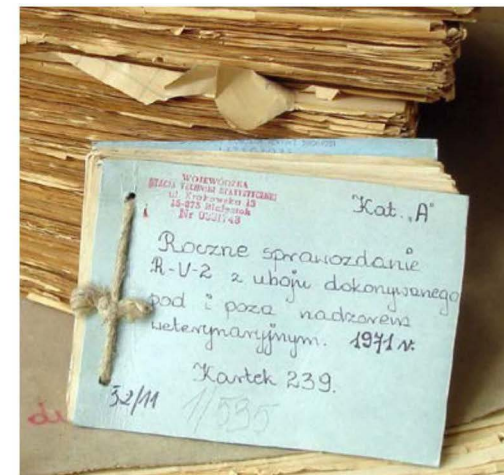 WOJEWÓDZKA
STACJA TECHNIKI STATYSTYCZNEJ
ul. Krakowska 13
15-875 Białystok
Kat. „A"
Roczne sprawozdanie
R-U-2 z uboju dokonywanego
pod i poza nadzorem
weterynaryjnym. 1971 r.
Kartek 239.
52/11
1/535